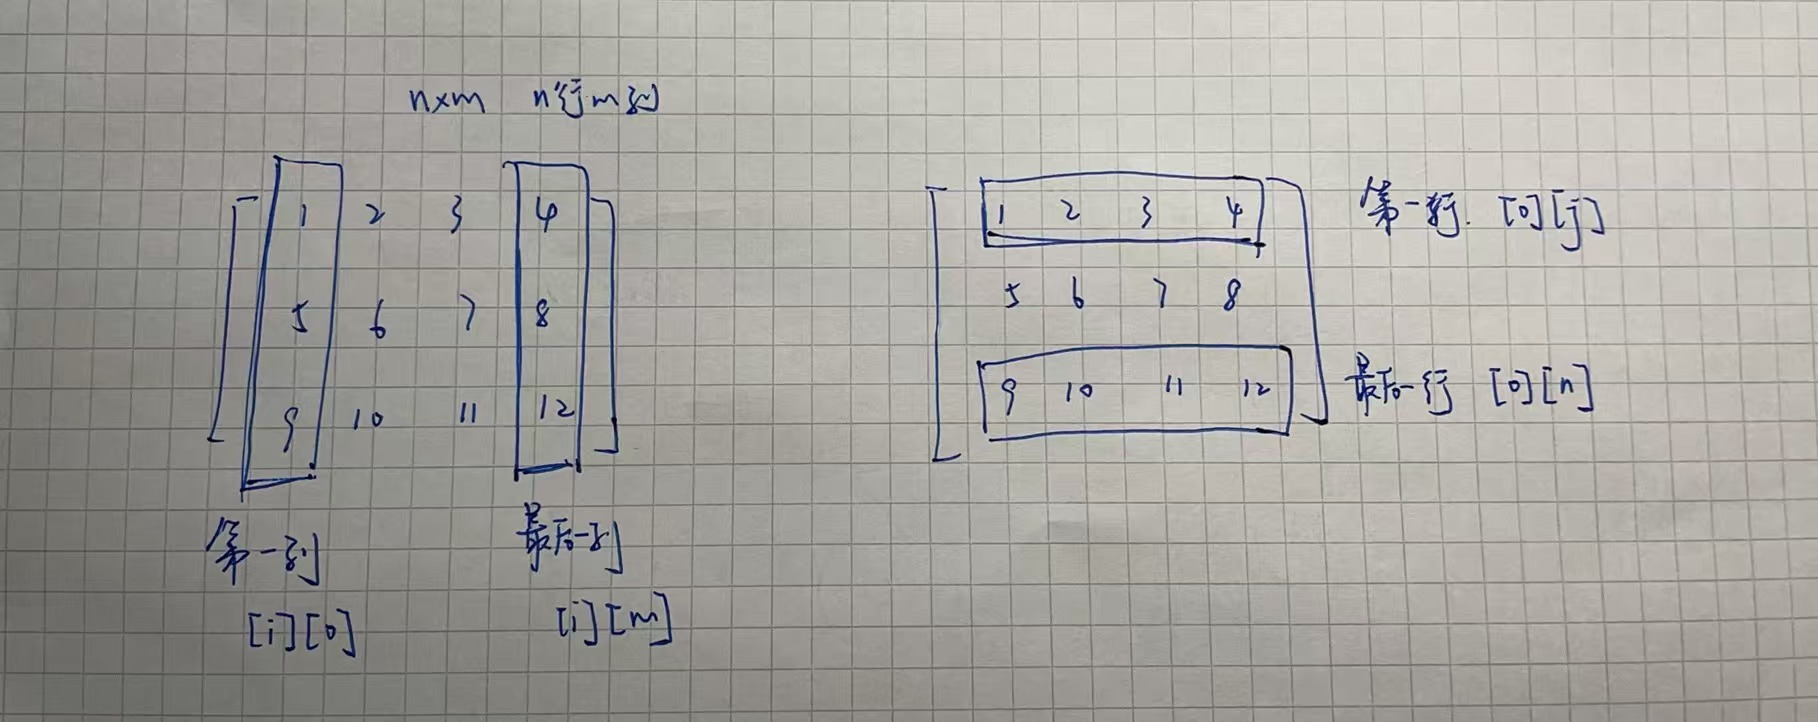 n×m n行m列
1 2 3 4
5 6 7 8
9 10 11 12
第一列 最后一列
[i][0] [i][m]
1 2 3 4 第一行. [0][j]
5 6 7 8
9 10 11 12 最后一行 [0][n]